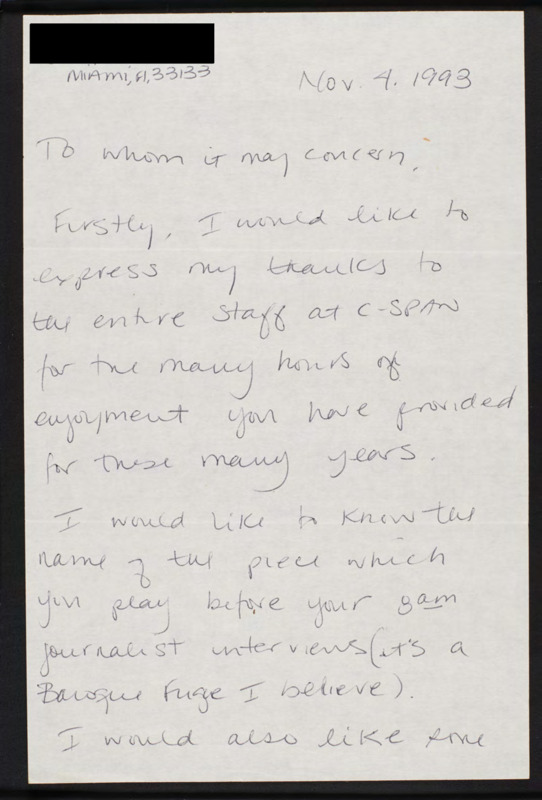 Miami, Fl, 33133
Nov. 4. 1993
To whom it may concern,
Firstly, I would like to
express my thanks to
the entire staff at C-SPAN
for the many hours of
enjoyment you have provided
for these many years.
I would like to know the
name of the piece which
you play before your 8am
journalist interviews (it's a
Baroque Fuge I believe).
I would also like some